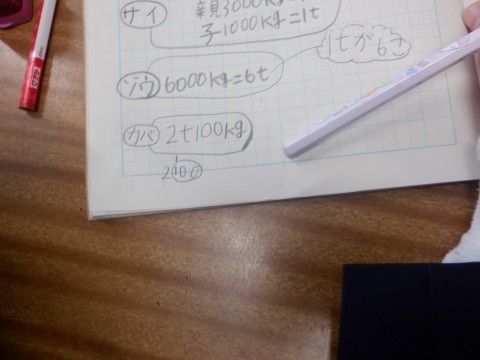 サイ 親3000kg=
子1000kg=1t
ゾウ 6000kg=6t
1tが6こ
カバ 2t100kg
2100